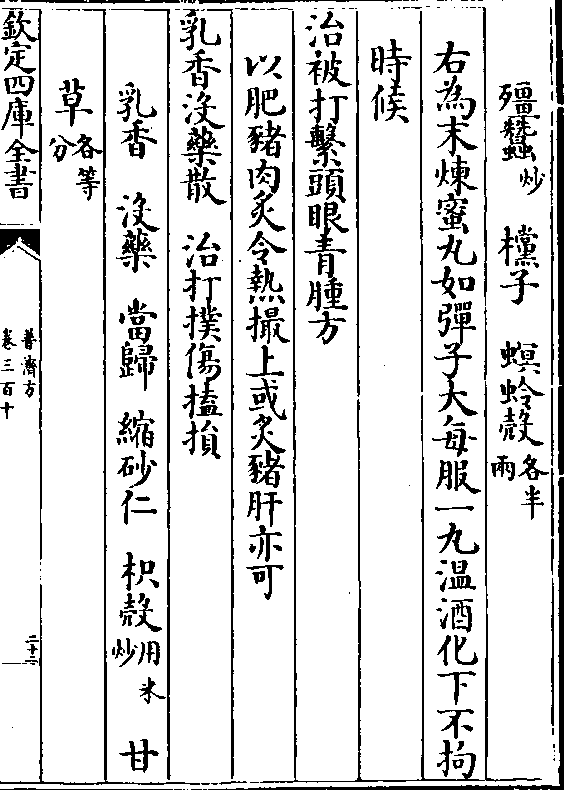 殭蠶炒　欓子　螟蛉殼各半兩
右為末煉蜜丸如彈子大每服一丸温酒化下不拘
時候
治被打繫頭眼青腫方
以肥豬肉炙令熱搨上或炙豬肝亦可
乳香没藥散　治打撲傷搕損
乳香　没藥　當歸　縮砂仁　枳殼用米炒　甘
草各等分
欽定四庫全書
普濟方
卷三百十
二十二